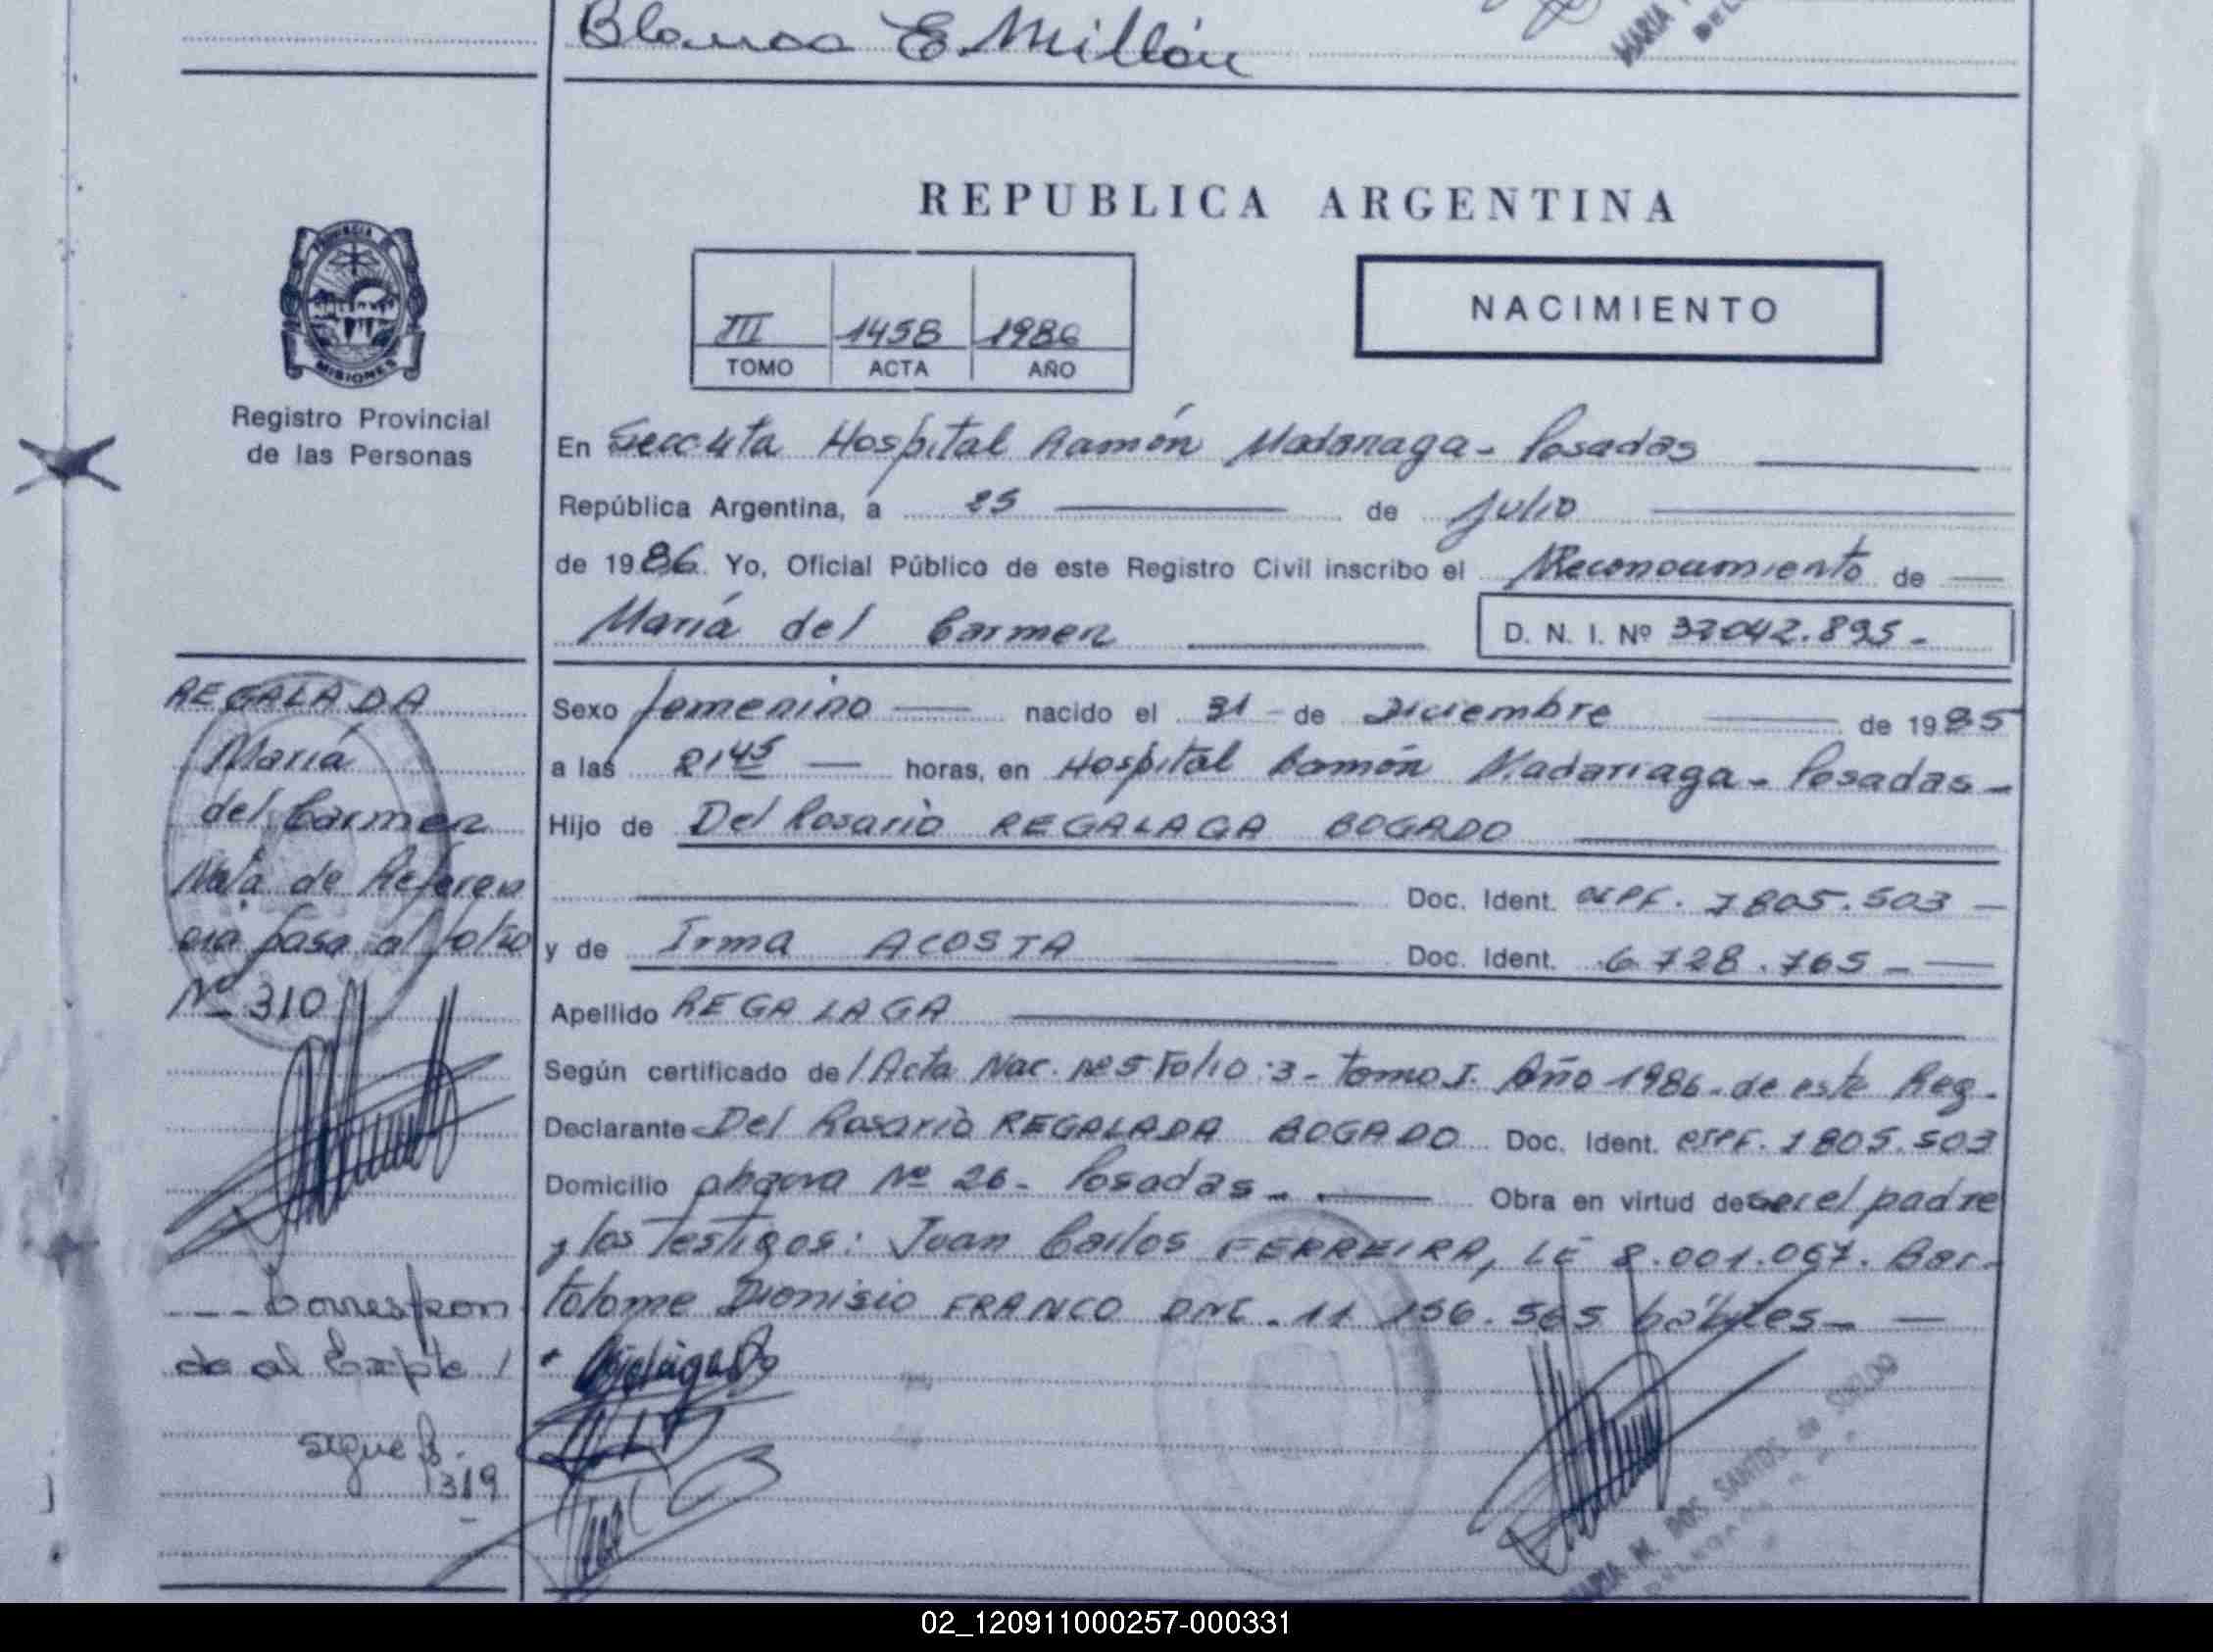 Blanca E Millán
MARIA
REPUBLICA ARGENTINA
PROVINCIA
MISIONES
Registro Provincial
de las Personas
III 1458 1986
TOMO ACTA AÑO
NACIMIENTO
En Seccita Hospital Ramón Madariaga - Posadas
República Argentina, a 25 de Julio
de 1986. Yo, Oficial Público de este Registro Civil inscribo el Reconocimiento de
María del Carmen D. N. I. Nº 32042.895 -
REGALADA
María
del Carmen
Nota de Referen
cia pasa al folio
Nº 310
Correspon
de al Expte /
sigue f.
319
Sexo femenino nacido el 31 de Diciembre de 1985
a las 21 45 horas, en Hospital Ramón Madariaga - Posadas -
Hijo de Del Rosario REGALAGA BOGADO
Doc. Ident. 1805.503
y de Irma ACOSTA Doc. Ident. 6.728.765 -
Apellido REGALAGA
Según certificado de / Acta Nac. Nº 5 Folio: 3 - Tomo I. Año 1986 - de este Reg -
Declarante Del Rosario REGALADA BOGADO Doc. Ident. 1805.503
Domicilio chacra Nº 26 - Posadas - Obra en virtud de ser el padre
y los Testigos: Juan Carlos FERREIRA, LE 8.001.067. Bar-
tolome Dionisio FRANCO DNI. 11 156.565 hábiles -
MARIA M. DOS SANTOS de SUELDO
02_120911000257-000331